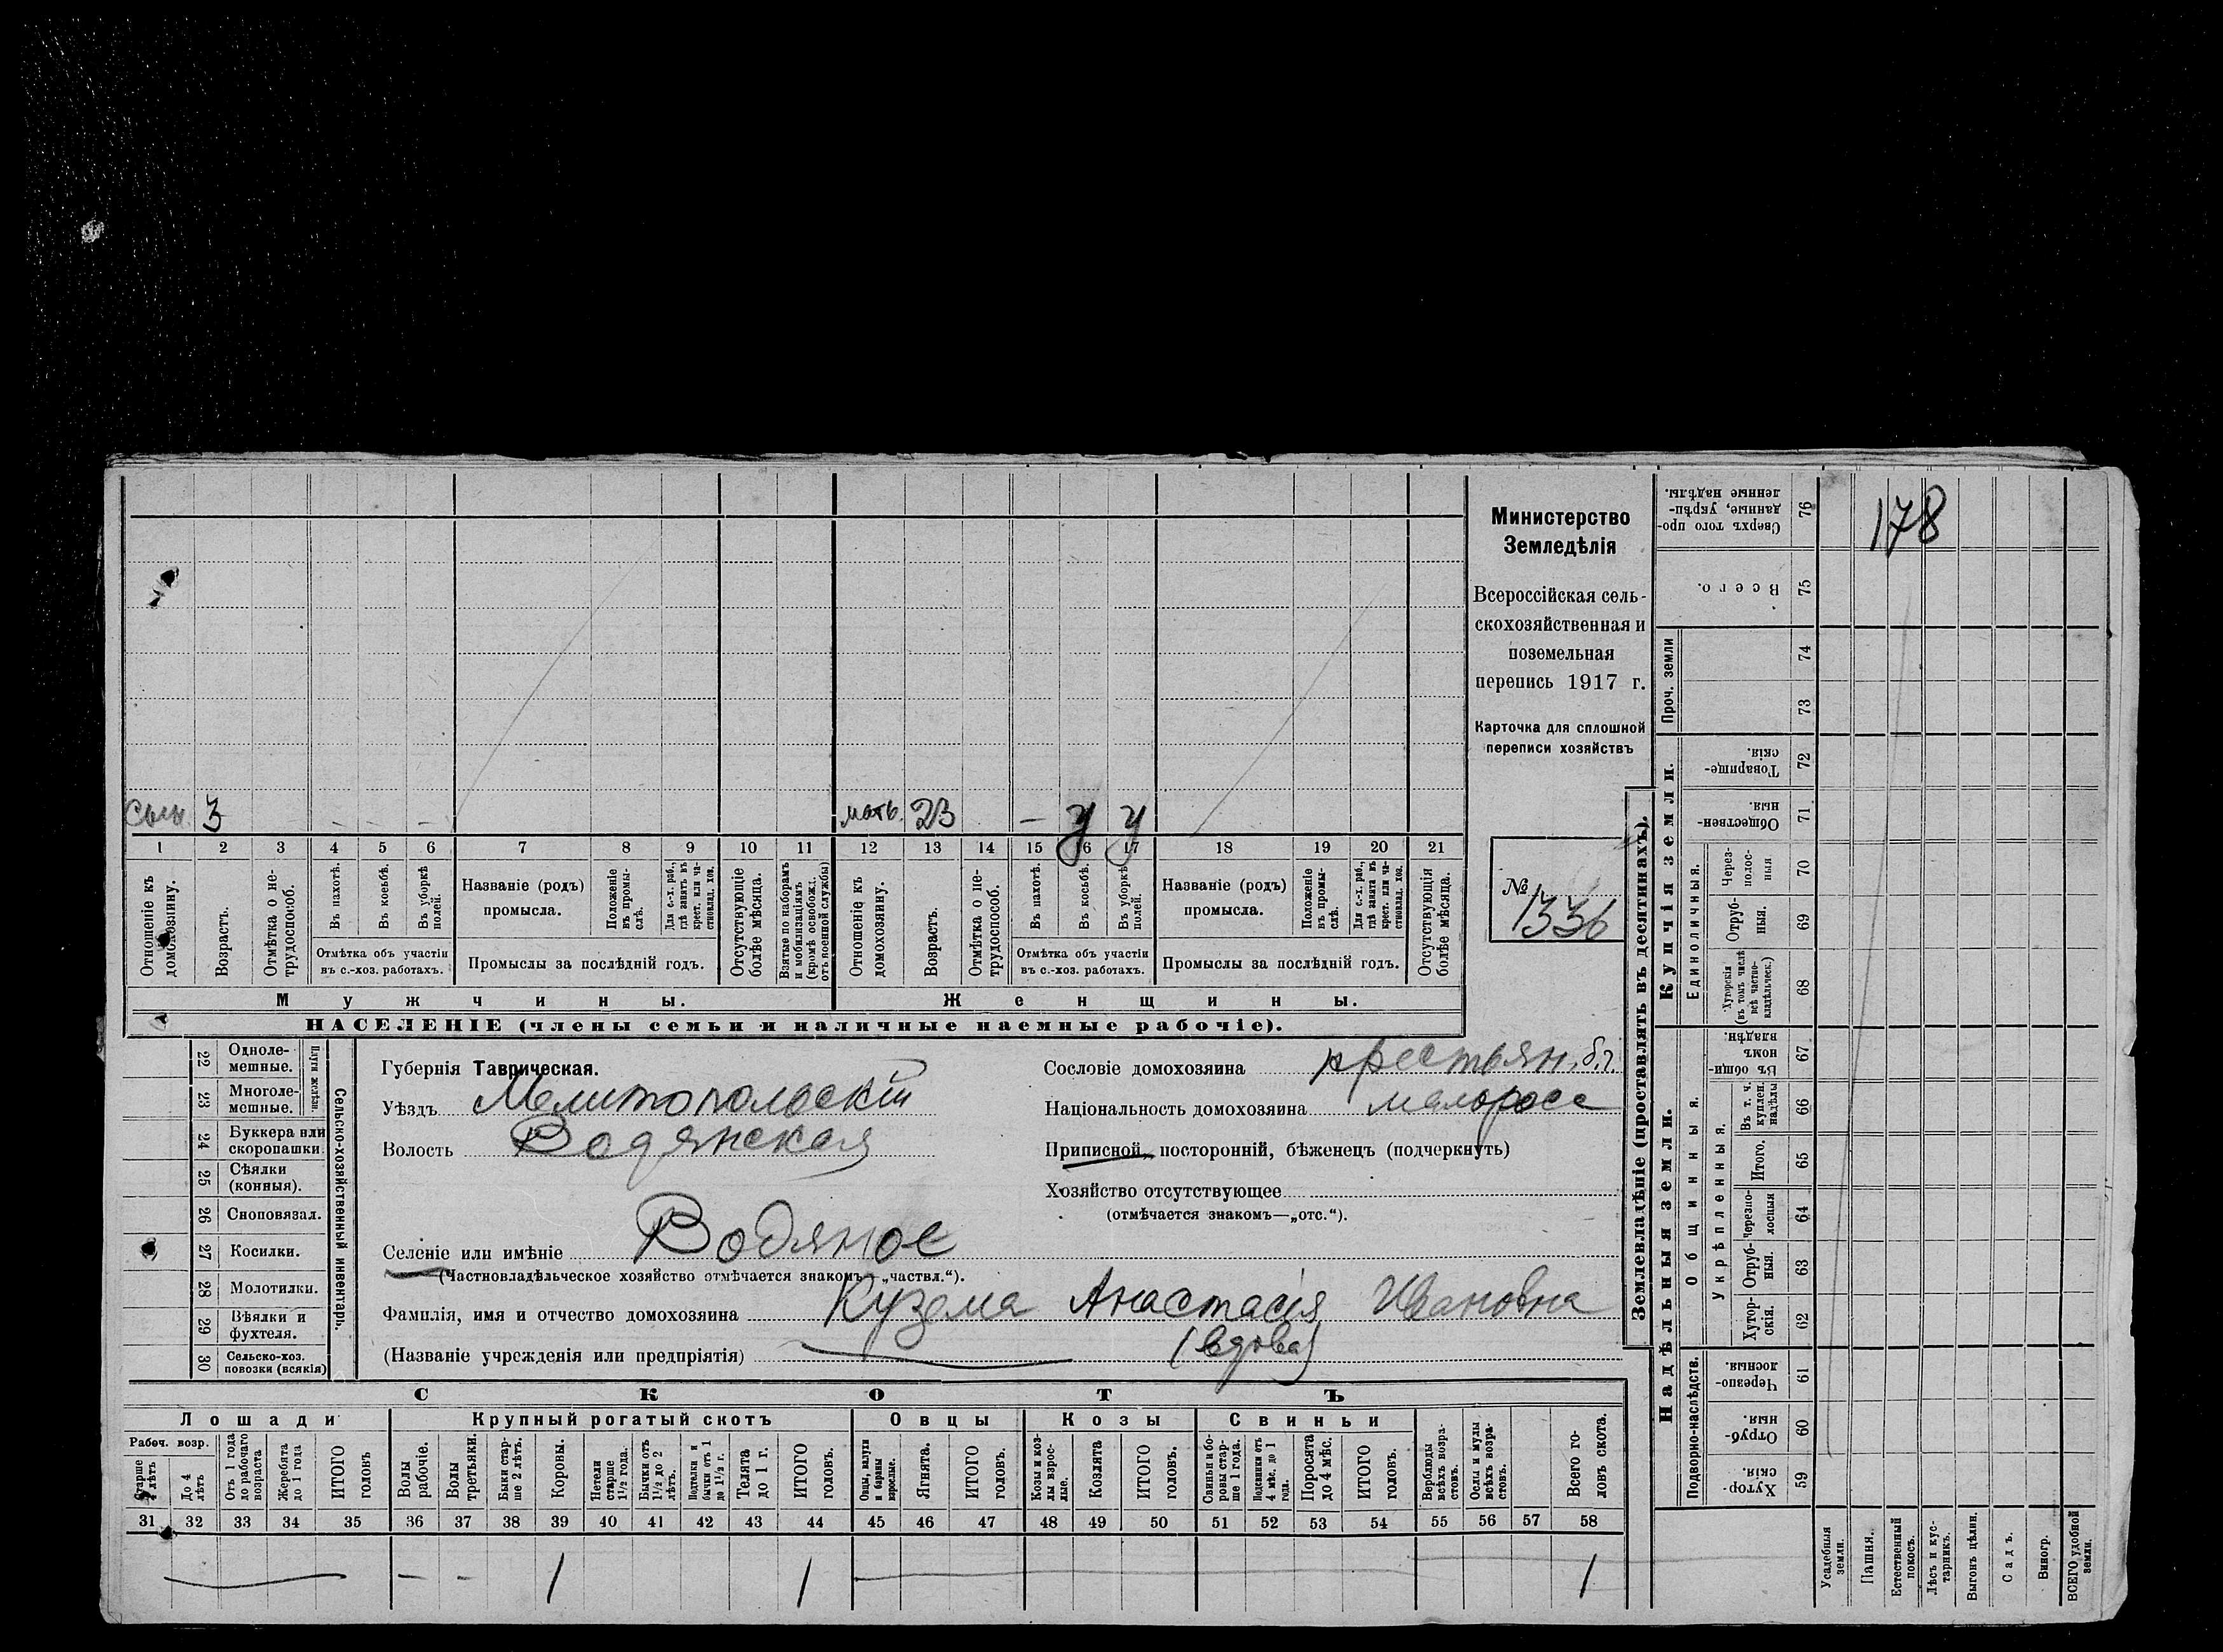 Министерство
Земледѣлія
Всероссійская сель-
скохозяйственная и
поземельная
перепись 1917 г.
Карточка для сплошной
переписи хозяйствъ
№
1336
178
сынъ 3 - - -
мать 23 - у у
1 2 3 4 5 6 7 8 9 10 11 12 13 14 15 16 17 18 19 20 21
Отношеніе къ домохозяину.
Возрастъ.
Отмѣтка о не-трудоспособ.
Въ пахотѣ.
Въ косьбѣ.
Въ уборкѣ полей.
Отмѣтка объ участіи
въ с.-хоз. работахъ.
Названіе (родъ)
промысла.
Положеніе въ промы-слѣ.
Для с.-х. раб., гдѣ занятъ въ крест. или ча-стновлад. хоз.
Промыслы за послѣдній годъ.
Отсутствующіе болѣе мѣсяца.
Взятые по наборамъ и мобилизаціямъ (кромѣ освобожд. отъ военной службы)
Отношеніе къ домохозяину.
Возрастъ.
Отмѣтка о не-трудоспособ.
Въ пахотѣ.
Въ косьбѣ.
Въ уборкѣ полей.
Отмѣтка объ участіи
въ с.-хоз. работахъ.
Названіе (родъ)
промысла.
Положеніе въ промы-слѣ.
Для с.-х. раб., гдѣ занята въ крест. или ча-стновлад. хоз.
Промыслы за послѣдній годъ.
Отсутствующія болѣе мѣсяца.
Мужчины.
Женщины.
НАСЕЛЕНІЕ (члены семьи и наличные наемные рабочіе).
22 Одноле-мешные.
23 Многоле-мешные.
Плуги желѣзн.
24 Буккера или скоропашки
25 Сѣялки (конныя).
26 Сноповязал.
27 Косилки.
28 Молотилки.
29 Вѣялки и фухтеля.
30 Сельско-хоз. повозки (всякія)
Сельско-хозяйственный инвентарь.
Губернія Таврическая.
Уѣздъ Мелитопольскій
Волость Водянская
Селеніе или имѣніе Водяное
(Частновладѣльческое хозяйство отмѣчается знакомъ—„частвл.“).
Фамилія, имя и отчество домохозяина Кузема Анастасія Ивановна
(Названіе учрежденія или предпріятія) (вдова)
Сословіе домохозяина крестьян. б. г.
Національность домохозяина малоросс
Приписной, посторонній, бѣженецъ (подчеркнуть)
Хозяйство отсутствующее
(отмѣчается знакомъ—„отс.“).
СКОТЪ
Лошади
Рабоч. возр.
Старше 4 лѣтъ
До 4 лѣтъ
Отъ 1 года до рабочаго возраста
Жеребята до 1 года
ИТОГО головъ
Крупный рогатый скотъ
Волы рабочіе.
Волы третьяки.
Быки стар-ше 2 лѣтъ.
Коровы.
Нетели старше 1½ года.
Бычки отъ 1½ до 2 лѣтъ.
Подтелки и бычки отъ 1 до 1½ г.
Телята до 1 г.
ИТОГО головъ.
Овцы
Овцы, валухи и бараны взрослые.
Ягнята.
ИТОГО головъ.
Козы
Козы и коз-лы взрос-лые.
Козлята
ИТОГО головъ.
Свиньи
Свиньи и бо-ровы стар-ше 1 года.
Подсвинки отъ 4 мѣс. до 1 года.
Поросята до 4 мѣс.
ИТОГО головъ.
Верблюды всѣхъ возра-стовъ.
Ослы и мулы всѣхъ возра-стовъ.
Всего го-ловъ скота.
31 32 33 34 35 36 37 38 39 40 41 42 43 44 45 46 47 48 49 50 51 52 53 54 55 56 57 58
- - 1 1 1
Землевладѣніе (проставлять въ десятинахъ).
Надѣльныя земли.
Купчія земли.
Проч. земли
Подворно-наслѣдств.
Общинныя.
Укрѣпленныя.
Единоличныя.
76 Сверхъ того про-данные, укрѣп-ленные надѣлы.
75 Всего.
74
73
72 Товарище-скія.
71 Обществен-ныя.
70 Через-полос-ныя
69 Отруб-ныя.
68 Хуторскія (въ томъ числѣ всѣ частно-владѣльческ.)
67 Въ общин-номъ владѣн.
66 Въ т. ч. куплен. надѣлы
65 Итого.
64 Черезпо-лосныя
63 Отруб-ныя.
62 Хутор-скія.
61 Черезпо-лосныя.
60 Отруб-ныя.
59 Хутор-скія.
Усадебныя земли.
Пашня.
Естественный покосъ.
Лѣсъ и кус-тарникъ.
Выгонъ цѣлин.
Садъ.
Виногр.
ВСЕГО удобной земли.